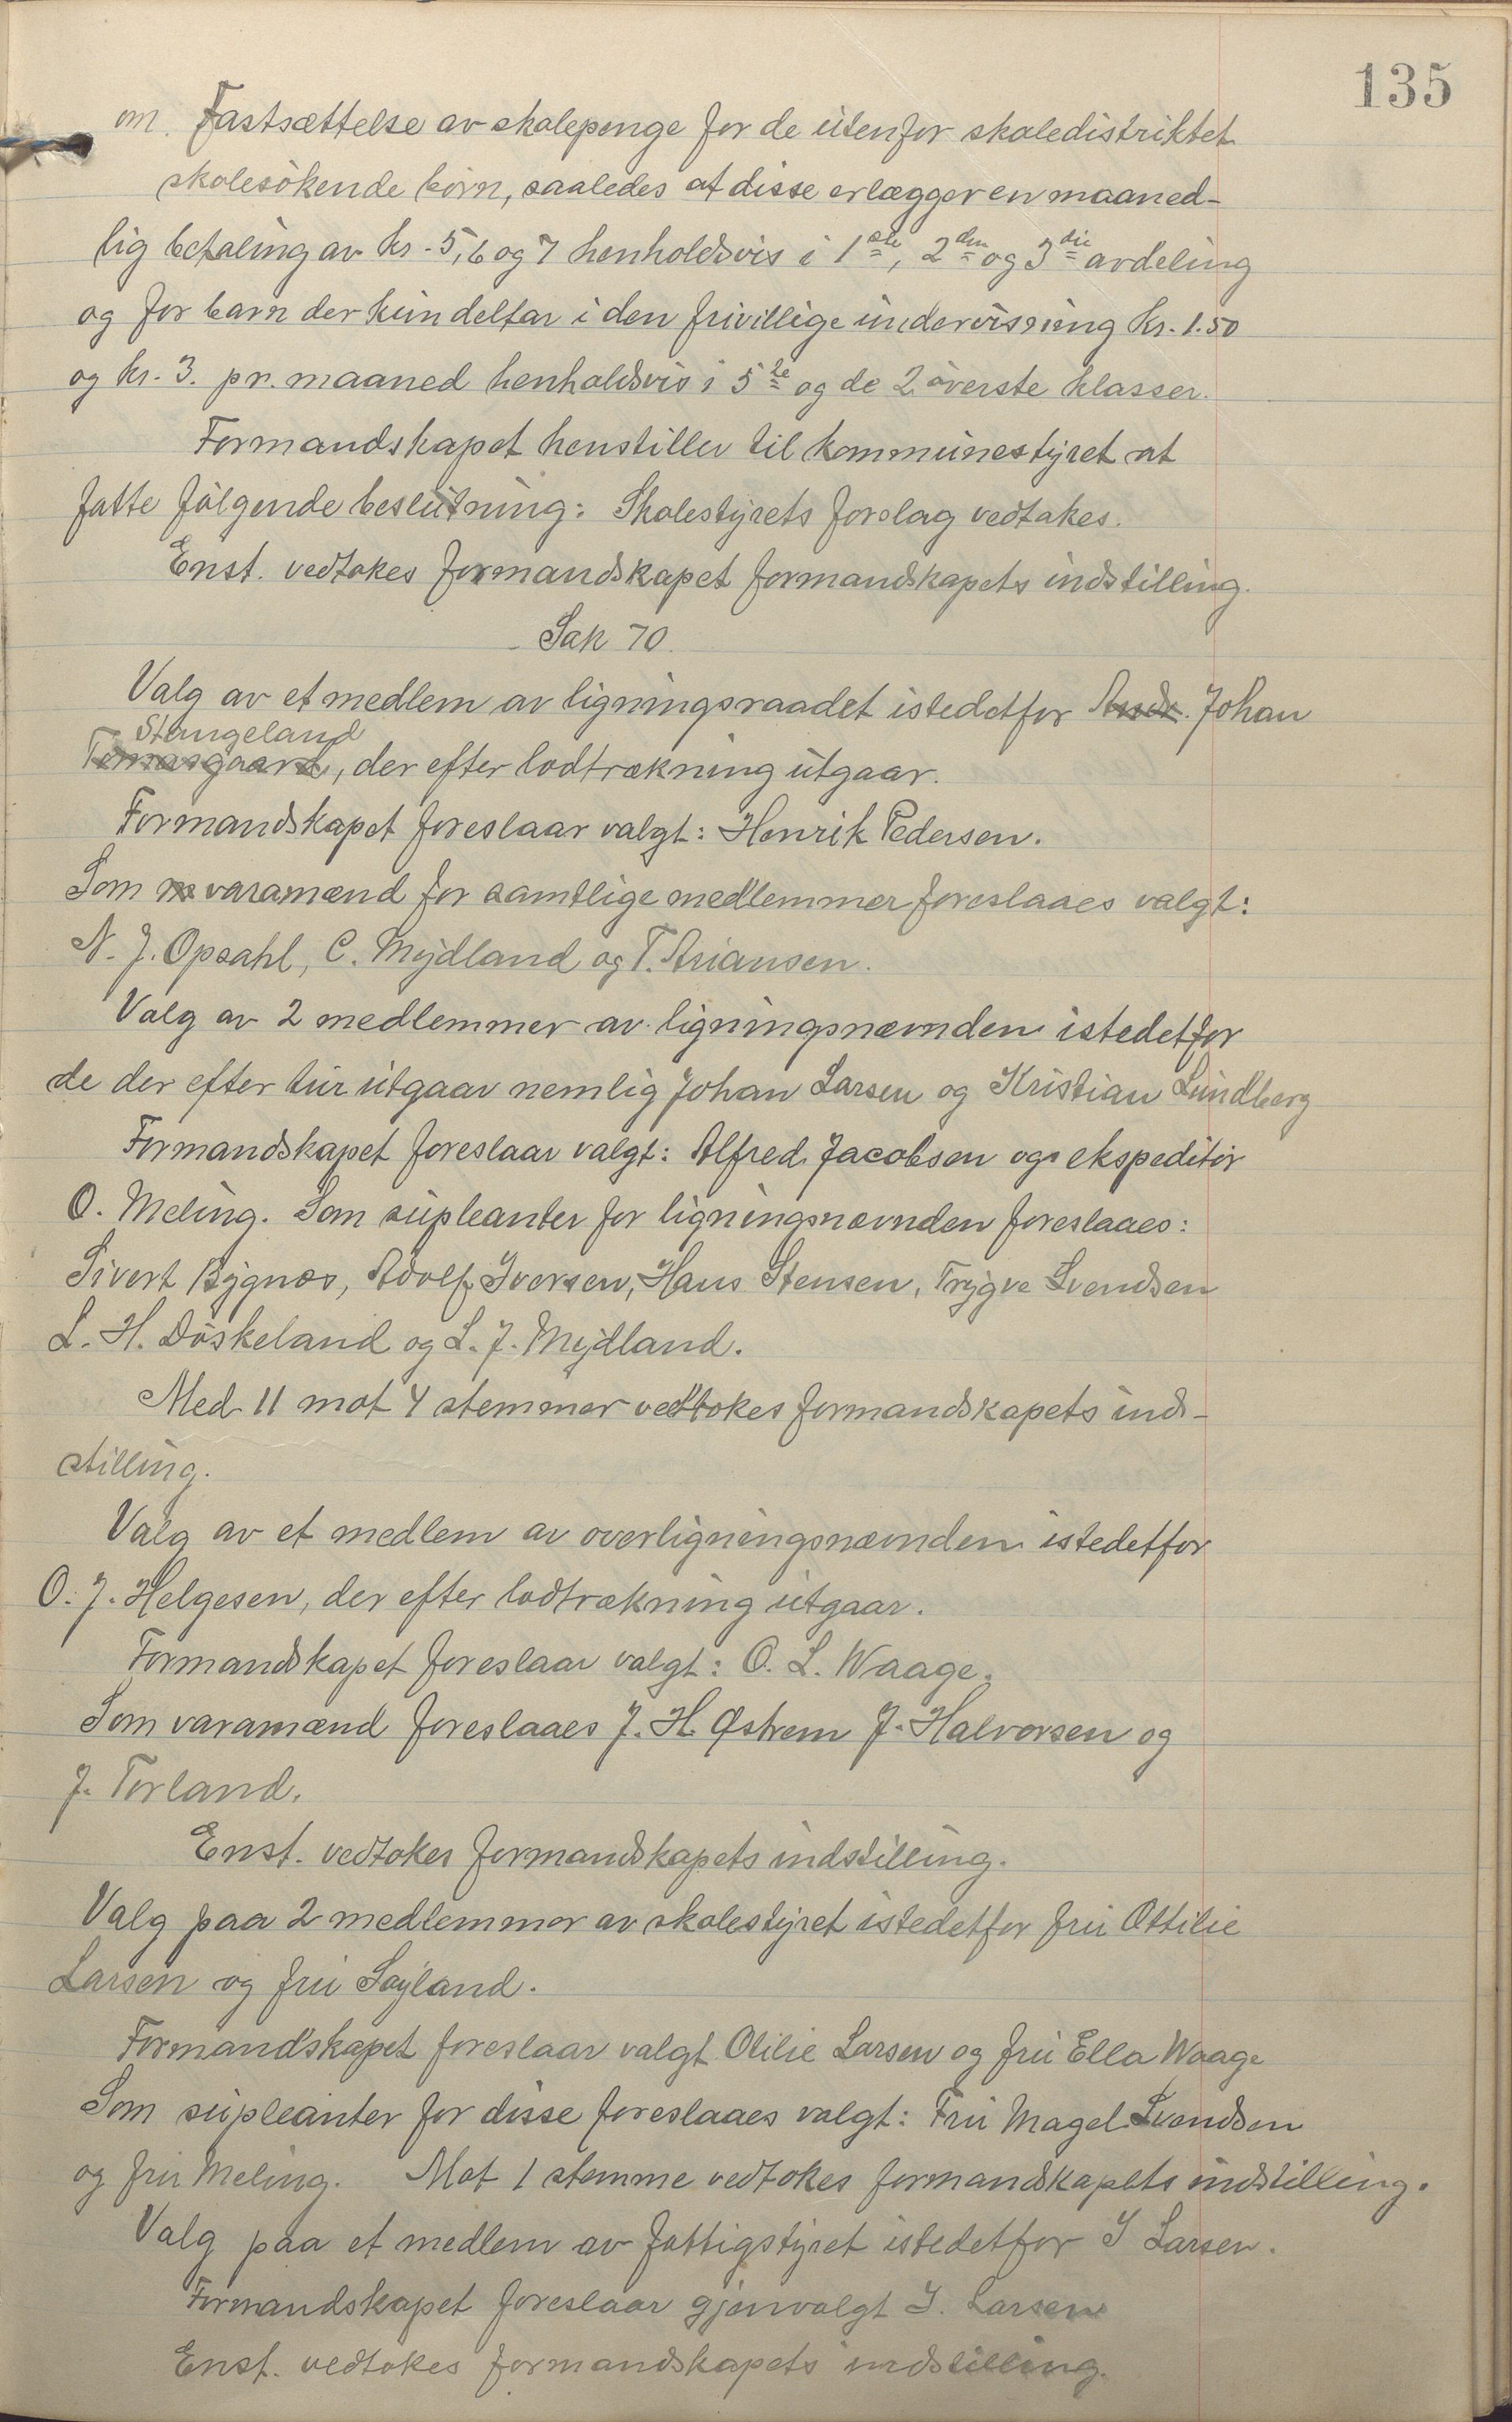 135
om. Fastsættelse av skolepenge for de utenfor skoledistriktet
skolesökende börn, saaledes at disse erlægger en maaned-
lig betaling av kr. 5, 6 og 7 henholdsvis i 1ste, 2den og 3die avdeling
og for barn der kun deltar i den frivillige undervisning kr. 1.50
og kr. 3. pr. maaned henholdsvis i 5te og de 2 överste klasser.
Formandskapet henstiller til kommunestyret at
fatte fölgende beslutning: Skolestyrets forslag vedtakes.
Enst. vedtokes formandskapet formandskapets indstilling.
Sak 70.
Valg av et medlem av ligningsraadet istedetfor Johan
Stangeland
, der efter lodtrækning utgaar.
Formandskapet foreslaar valgt: Henrik Pedersen.
Som varamænd for samtlige medlemmer foreslaaes valgt:
N. J. Opsahl, C. Mydland og T. Ariansen.
Valg av 2 medlemmer av ligningsnævnden istedetfor
de der efter tur utgaar nemlig Johan Larsen og Kristian Lundberg
Formandskapet foreslaar valgt: Alfred Jacobsen og ekspeditör
O. Meling. Som supleanter for ligningsnævnden foreslaaes:
Sivert Bygnæs, Adolf Iversen, Hans Stensen, Trygve Svendsen
L. H. Döskeland og L. J. Mydland.
Med 11 mot 4 stemmer vedtokes formandskapets ind-
stilling.
Valg av et medlem av overligningsnævnden istedetfor
O. J. Helgesen, der efter lodtrækning utgaar.
Formandskapet foreslaar valgt: O. L. Waage.
Som varamænd foreslaaes J. H. Østrem J. Halvorsen og
J. Torland.
Enst. vedtokes formandskapets indstilling.
Valg paa 2 medlemmer av skolestyret istedetfor fru Ottilie
Larsen og fru Söyland.
Formandskapet foreslaar valgt Otilie Larsen og fru Ella Waage
Som supleanter for disse foreslaaes valgt: Fru Magel Svendsen
og fru Meling. Mot 1 stemme vedtokes formandskapets indstilling.
Valg paa et medlem av fattigstyret istedetfor I Larsen.
Formandskapet foreslaar gjenvalgt I. Larsen
Enst. vedtokes formandskapets indstilling.